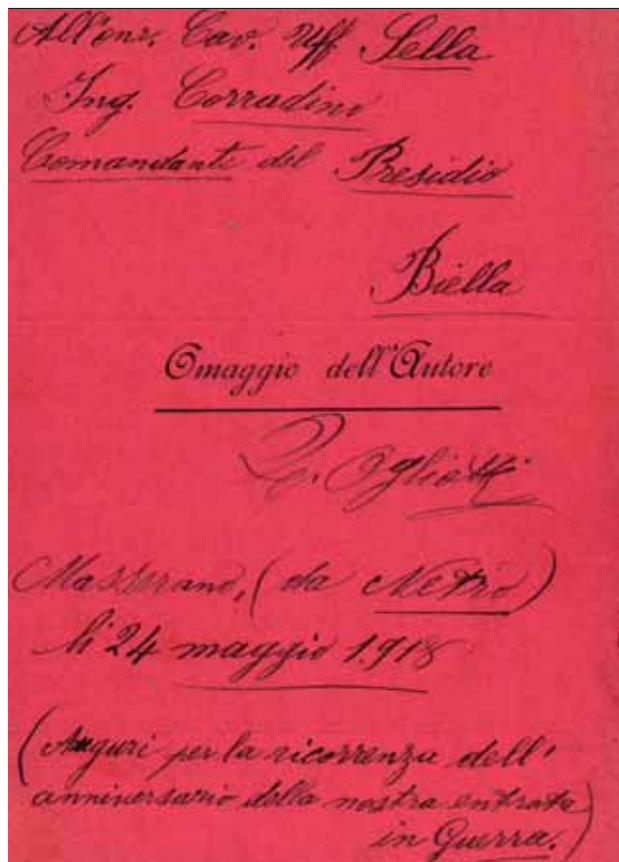 All'onr. Cav. Uff Sella
Ing. Corradino
Comandante del Presidio
Biella
Omaggio dell'Autore
Ogliotti
Masserano, (da Netro)
li 24 maggio 1.918
(Auguri per la ricorrenza dell'
anniversario della nostra entrata
in Guerra.)